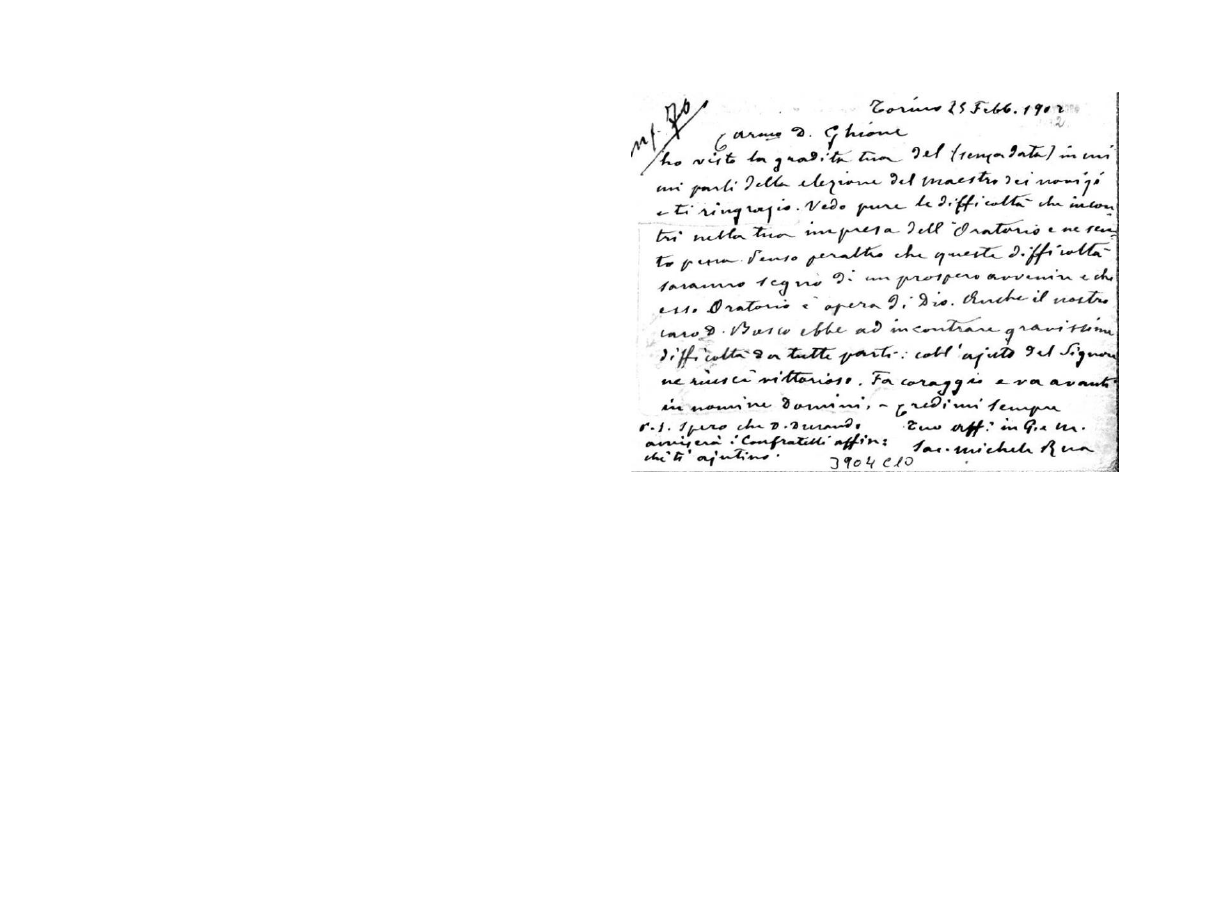 Torino 25 Febb. 1902
2
n. 70
Car.mo D. Ghione
ho visto la gradita tua del (senza data) in cui
mi parli della elezione del maestro dei novizi
e ti ringrazio. Vedo pure le difficoltà che incon-
tri nella tua impresa dell'Oratorio e ne sen-
to pena. Penso peraltro che queste difficoltà
saranno segno di un prospero avvenire e che
esso Oratorio è opera di Dio. Anche il nostro
caro D. Bosco ebbe ad incontrare gravissime
difficoltà da tutte parti: coll'ajuto del Signore
ne riuscì vittorioso. Fa coraggio e va avanti
in nomine Domini, - Credimi sempre
Tuo aff.° in G. e M.
Sac. Michele Rua
P.S. Spero che D. Durando
avviserà i Confratelli affin:
chè ti ajutino.
3904 C10